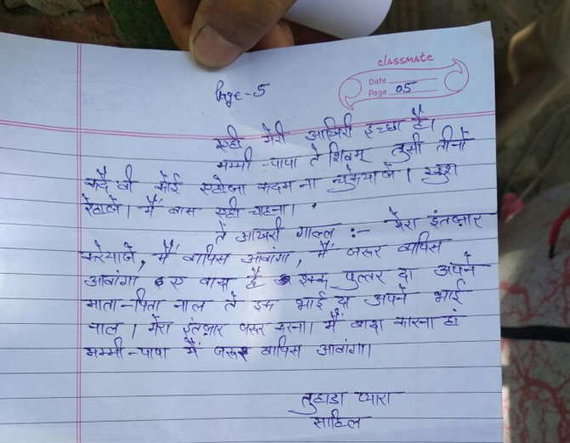 classmate
Date
Page 05
Page-5
एही मेरी आखिरी इच्छा है।
मम्मी-पापा ते शिवम् तुसी तीनों
कदे वी कोई एहोजा कदम ना चुकयाजे। खुश
रेहाजे। मैं बास एही चाहना।
ते आखरी गाल्ल :- मेरा इंतज़ार
करेयाजे, मैं वापिस आवांगा, मैं जरूर वापिस
आवांगा ए वादा है इक्क पुत्तर दा अपने
माता-पिता नाल ते इक भाई दा अपने भाई
नाल। मेरा इंतज़ार जरूर करना। मैं वादा कारना हां
मम्मी-पापा मैं जरूर वापिस आवांगा।
तुहाडा प्यारा
साहिल